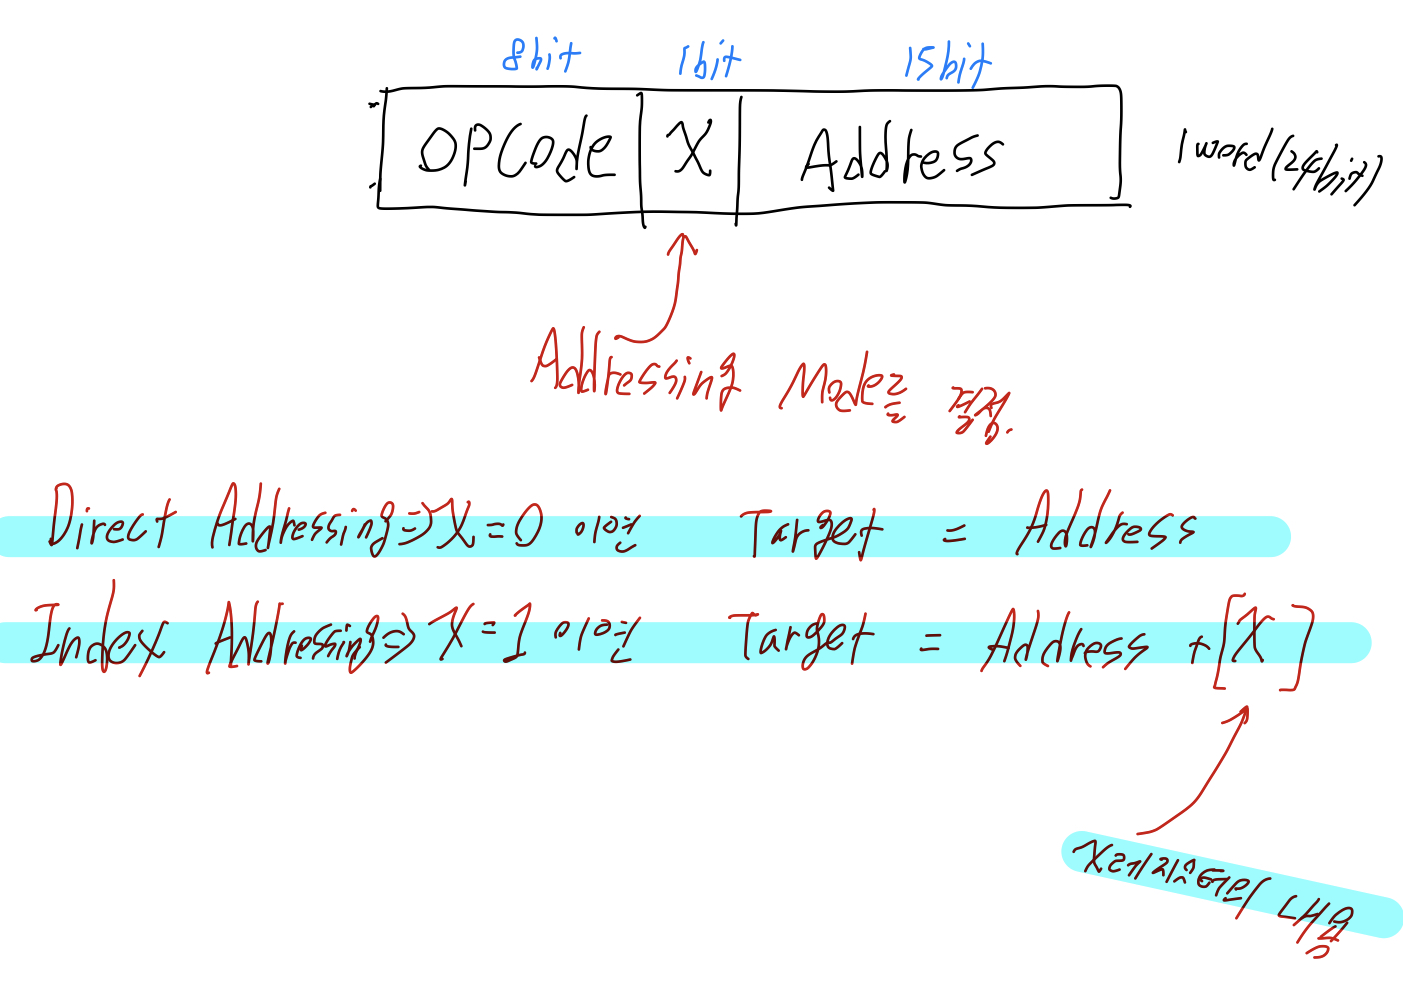 8bit 1bit 15bit
OPCode X Address
1 word (24bit)
Addressing Mode를 결정.
Direct Addressing => X=0 이면 Target = Address
Index Addressing => X=1 이면 Target = Address + [X]
X레지스터의 내용